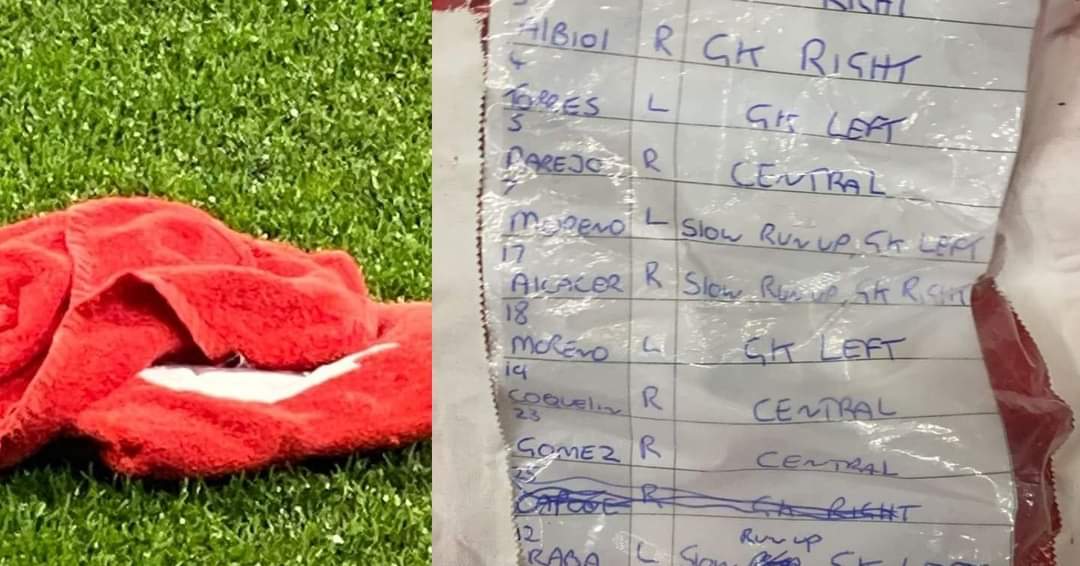 RIGHT
ALBIOL R GK RIGHT
4
TORRES L GK LEFT
5
PAREJO R CENTRAL
7
MORENO L Slow Run up, GK LEFT
17
ALCACER R Slow Run up, GK RIGHT
18
MORENO L GK LEFT
19
COQUELIN R CENTRAL
23
GOMEZ R CENTRAL
25
CAPOUE R GK RIGHT
12 Run up
RABA L Slow GK